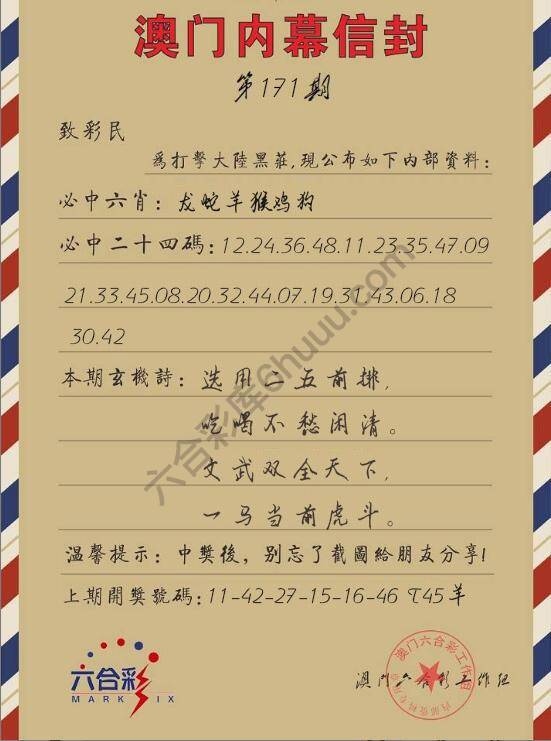 澳门内幕信封
第171期
致彩民
為打擊大陸黑莊,現公布如下內部資料:
必中六肖:龙蛇羊猴鸡狗
必中二十四碼:12.24.36.48.11.23.35.47.09
21.33.45.08.20.32.44.07.19.31.43.06.18
30.42
本期玄機詩:选用二五前排,
吃喝不愁闲清。
文武双全天下,
一马当前虎斗。
溫馨提示:中獎後,別忘了截圖給朋友分享!
上期開獎號碼:11-42-27-15-16-46 T45羊
六合彩库6huuu.com
六合彩
MARK SIX
澳门六合彩工作组
澳门六合彩工作组